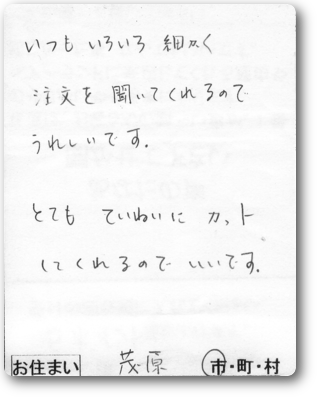 いつも いろいろ 細かく
注文を 聞いてくれるので
うれしいです.
とても ていねいに カット
してくれるので いいです.
お住まい 茂原 市・町・村